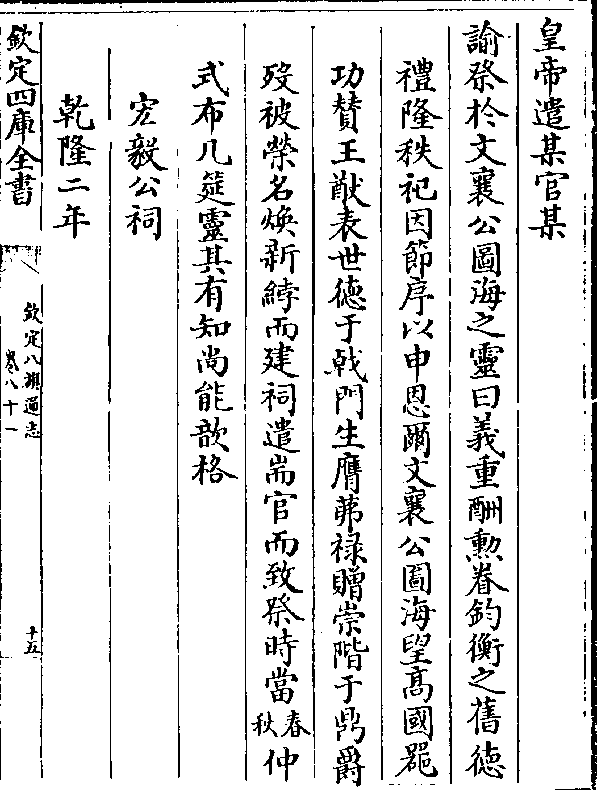 皇帝遣某官某
諭祭於文襄公圖海之靈曰義重酬勲眷鈞衡之舊徳
禮隆秩祀因節序以申恩爾文襄公圖海望髙國器
功賛王猷表世徳于戟門生膺茀禄贈崇階于鼎爵
歿被榮名煥新綍而建祠遣耑官而致祭時當春秋仲
式布几筵靈其有知尚能歆格
宏毅公祠
乾隆二年
欽定四庫全書
欽定八旗通志
卷八十一
十五